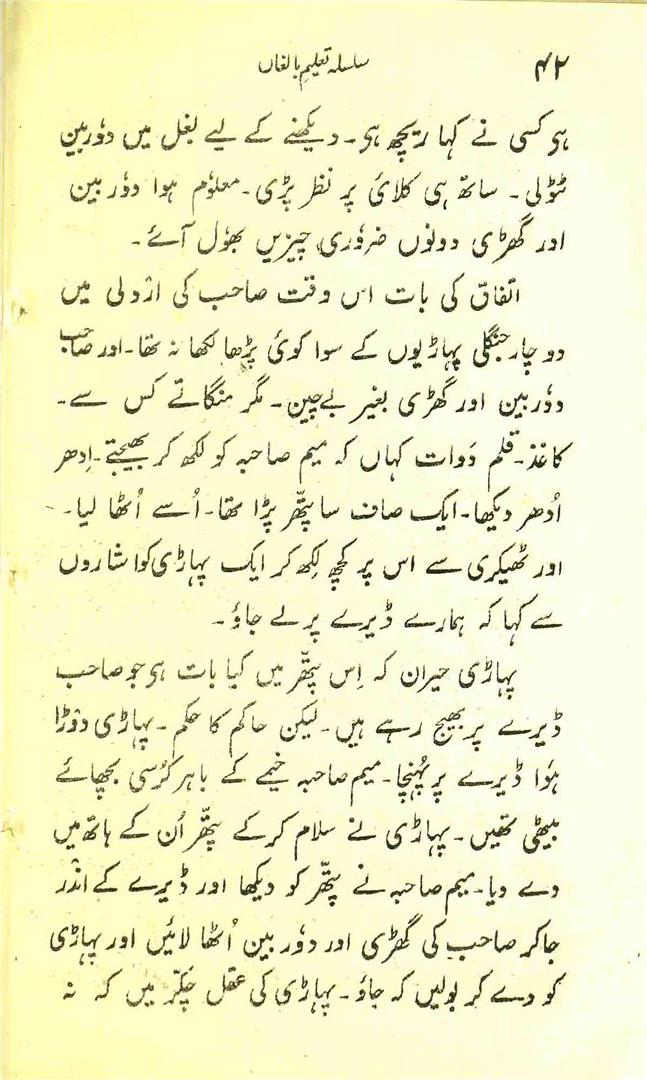 ۴۲
سلسلہ تعلیم بالغاں
ہی کسی نے کہا ریچھ ہی۔ دیکھنے کے لیے بغل میں دوٗربین
ٹٹولی۔ ساتھ ہی کلائی پر نظر پڑی۔ معلوٗم ہوا دوٗربین
اور گھڑی دونوں ضروٗری چیزیں بھوٗل آئے۔
اتفاق کی بات اس وقت صاحب کی اردلی میں
دو چار جنگلی پہاڑیوں کے سوا کوئی پڑھا لکھا نہ تھا۔ اور صاحب
دوٗربین اور گھڑی بغیر بےچین۔ مگر منگاتے کس سے۔
کاغذ۔ قلم دَوات کہاں کہ میم صاحبہ کو لکھ کر بھیجتے۔ اِدھر
اُدھر دیکھا۔ ایک صاف سا پتھّر پڑا تھا۔ اُسے اُٹھا لیا۔
اور ٹھیکری سے اس پر کچھ لِکھ کر ایک پہاڑی کو اشاروں
سے کہا کہ ہمارے ڈیرے پر لے جاؤ۔
پہاڑی حیران کہ اِس پتھّر میں کیا بات ہی جو صاحب
ڈیرے پر بھیج رہے ہیں۔ لیکن حاکم کا حکم۔ پہاڑی دَوڑا
ہوَا ڈیرے پر پہُنچا۔ میم صاحبہ خیمے کے باہر کرُسی بچھائے
بیٹھی تھیں۔ پہاڑی نے سلام کرکے پتھّر اُن کے ہاتھ میں
دے دیا۔ میم صاحبہ نے پتھّر کو دیکھا اور ڈیرے کے اندر
جاکر صاحب کی گھڑی اور دوٗربین اُٹھا لائیں اور پہاڑی
کو دے کر بولیں کہ جاؤ۔ پہاڑی کی عقل چکّر میں کہ نہ